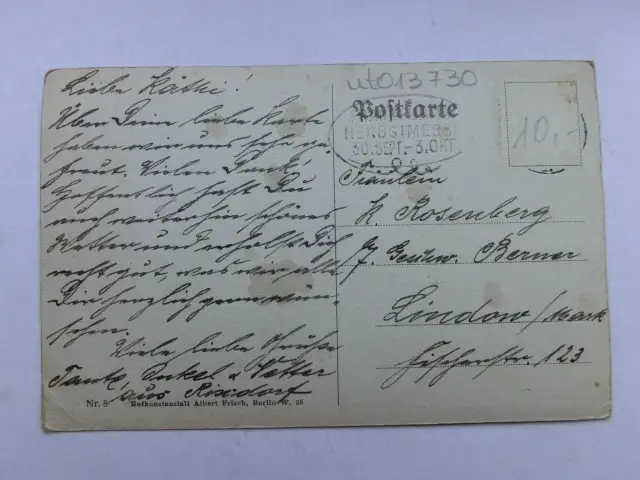 Liebe Käthi!
Über Deine liebe Karte
haben wir uns sehr ge-
freut. Vielen Dank!
Hoffentlich hast Du
auch weiterhin schönes
Wetter und erholst Dich
recht gut, was wir alle
Dir herzlich gern wün-
schen.
Viele liebe Grüße
Tante Onkel & Vetter
aus Rixdorf
Nr. 8 Hofkunstanstalt Albert Frisch, Berlin W. 35
ut013730
Postkarte
HERBSTMESSE
30. SEPT.-3. OKT.
10,-
Fräulein
K. Rosenberg
Berner
Lindow/Mark
Fischerstr. 123